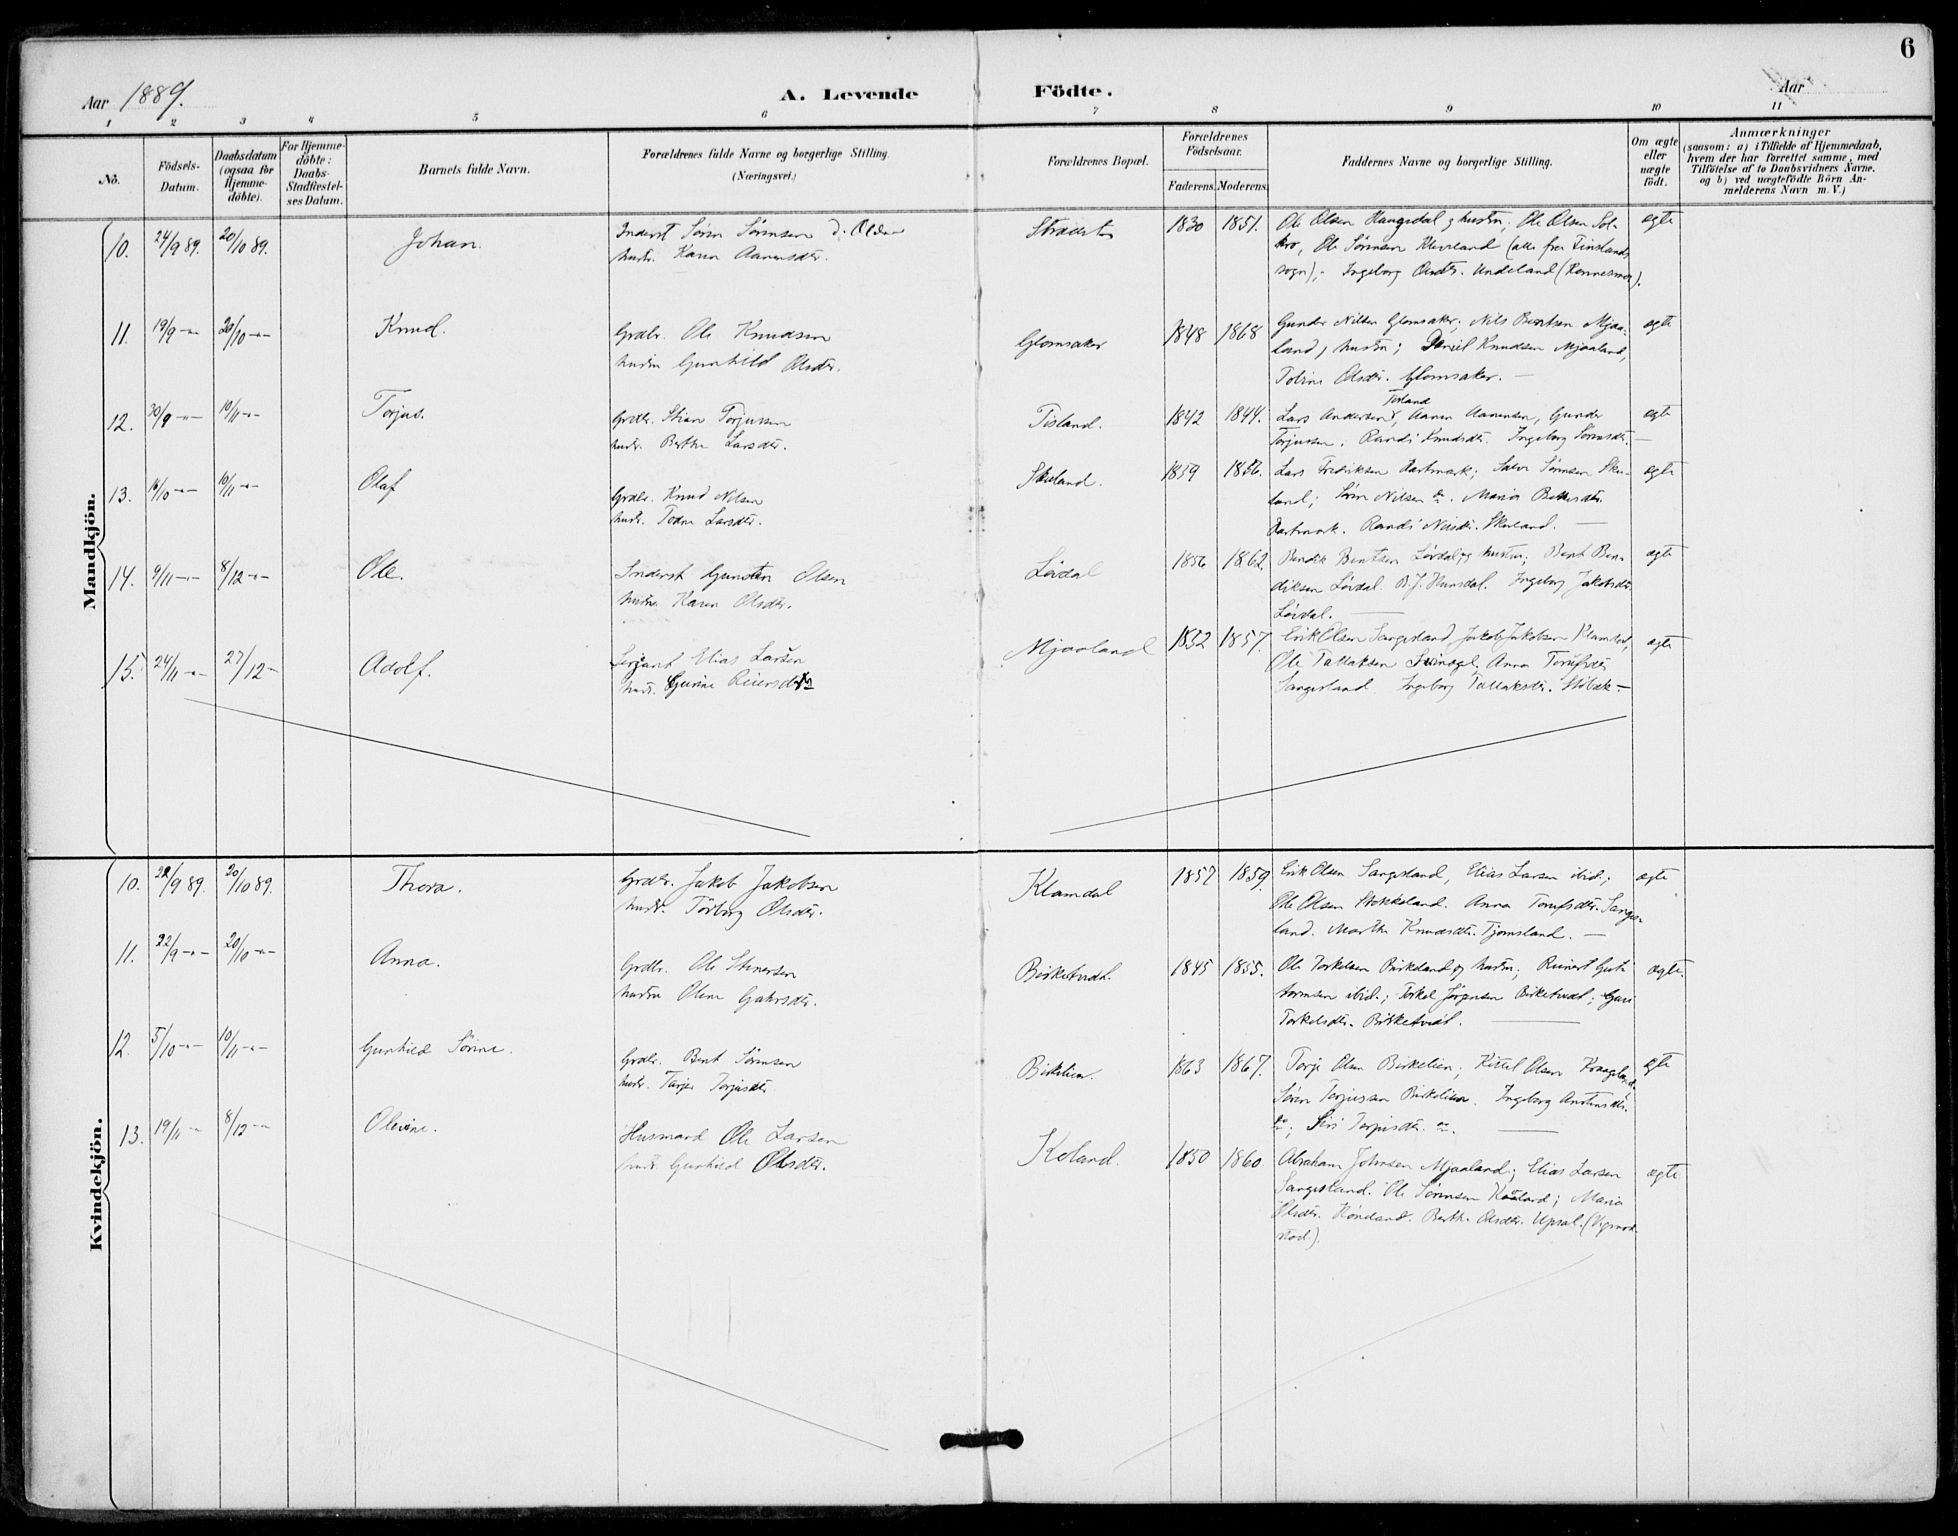 6
Aar 1889.
A. Levende Födte.
Aar
1 2 3 4 5 6 7 8 9 10 11
No.
Födsels-Datum.
Daabsdatum (ogsaa for Hjemme-döbte).
For Hjemme-döbte: Daabs-Stadfæstel-ses Datum.
Barnets fulde Navn.
Forældrenes fulde Navne og borgerlige Stilling.
(Næringsvei.)
Forældrenes Bopæl.
Forældrenes Födselsaar.
Faderens. Moderens.
Faddernes Navne og borgerlige Stilling.
Om ægte eller uægte födt.
Anmærkninger
(saasom: a) i Tilfælde af Hjemmedaab,
hvem der har forrettet samme, med
Tilföielse af to Daabsvidners Navne,
og b) ved uægtefödte Börn An-
melderens Navn m. V.)
Mandkjön.
10. 24/9 89. 20/10 89. Johan. Inderst Søren Sørensen 1830 1851. Ole Olsen Haugedal og hustru; Ole Olsen ægte
hustr. Karen Aanensdtr. Ole Sørensen Kleveland (alle fra Finslands
sogn); Ingeborg Undeland
11. 19/9 -"- 20/10 -"- Knud. Grdbr. Ole Knudsen Glomsaker 1848 1868 Gunder Nilsen Glomsaker; Nils Bentsen Mjaa- ægte
hustru Gunhild Olsdtr. land, hustru; Daniel Knudsen Mjaaland,
Tobine Olsdtr. Glomsaker. —
12. 30/9 -"- 10/11 -"- Torjus. Grdbr. Stian Torjussen Tisland. 1842 1844. Lars Andersen Tisland, Aanen Aanensen, Gunder ægte
hustr. Berthe Larsdtr. Torjussen. Randi Knudsdtr. Ingeborg Sørensdtr. —
13. 16/10 -"- 10/11 -"- Olaf Grdbr. Knud Nilsen Skuland. 1859 1856. Lars Fredriksen Hartmark; Salve Sørensen Sku- ægte
hustr. Todne Larsdtr. land; Søren Nilsen do. Maria
Hartmark. Randi Nilsdtr. Skuland. —
14. 9/11 -"- 8/12 -"- Ole. Inderst Gunsten Olsen Løvdal 1856 1862. Bendik Bentsen Løvdal og hustru; Bent Ben- ægte
hustru Karen Olsdtr. diksen Løvdal. B. J. Hunsdal. Ingeborg Jakobsdtr.
Løvdal. —
15. 24/11 -"- 27/12 - Adolf. Sersjant Elias Larsen Mjaaland 1852 1857. Erik Olsen Sangesland, Jakob Jakobsen Klamdal, ægte
hustr. Gurine Reiersdtr. Ole Tallaksen Anna
Sangesland. Ingeborg Tallaksdtr. —
Kvindekjön.
10. 22/9 89. 20/10 89. Thora. Grdbr. Jakob Jakobsen Klamdal 1857 1859. Erik Olsen Sangesland, Elias Larsen ibid.; ægte
hustr. Torborg Olsdtr. Ole Olsen Stokkeland. Anna Sanges-
land. Marthe Knudsdtr. Tjomsland. —
11. 22/9 -"- 20/10 -"- Anna. Grdbr. Ole Steinersen Birketvedt. 1845 1855. Ole Torkelsen Birkeland og hustru; Reinert Gut- ægte.
hustru Olene Gahrsdtr. tormsen ibid.; Torkel Jørgensen Birketvedt; Guri
Torkelsdtr. Birketvedt. —
12. 5/10 -"- 10/11 -"- Gunhild Sørine. Grdbr. Bent Sørensen Birkelien. 1863 1867. Torje Olsen Birkelien; Kittel Olsen ægte
hustr. Torjusdtr. Søren Torjussen Birkelien. Ingeborg
do; Siri Torjusdtr. do. —
13. 19/11 - 8/12 - Olevine. Husmand Ole Larsen Koland. 1850 1860. Abraham Johnsen Mjaaland; Elias Larsen ægte
hustr. Gunhild Olsdtr. Sangesland. Ole Sørensen Kaaland; Maria
Olsdtr. Berthe Olsdtr. Upsal. (Vigmos-
tad).